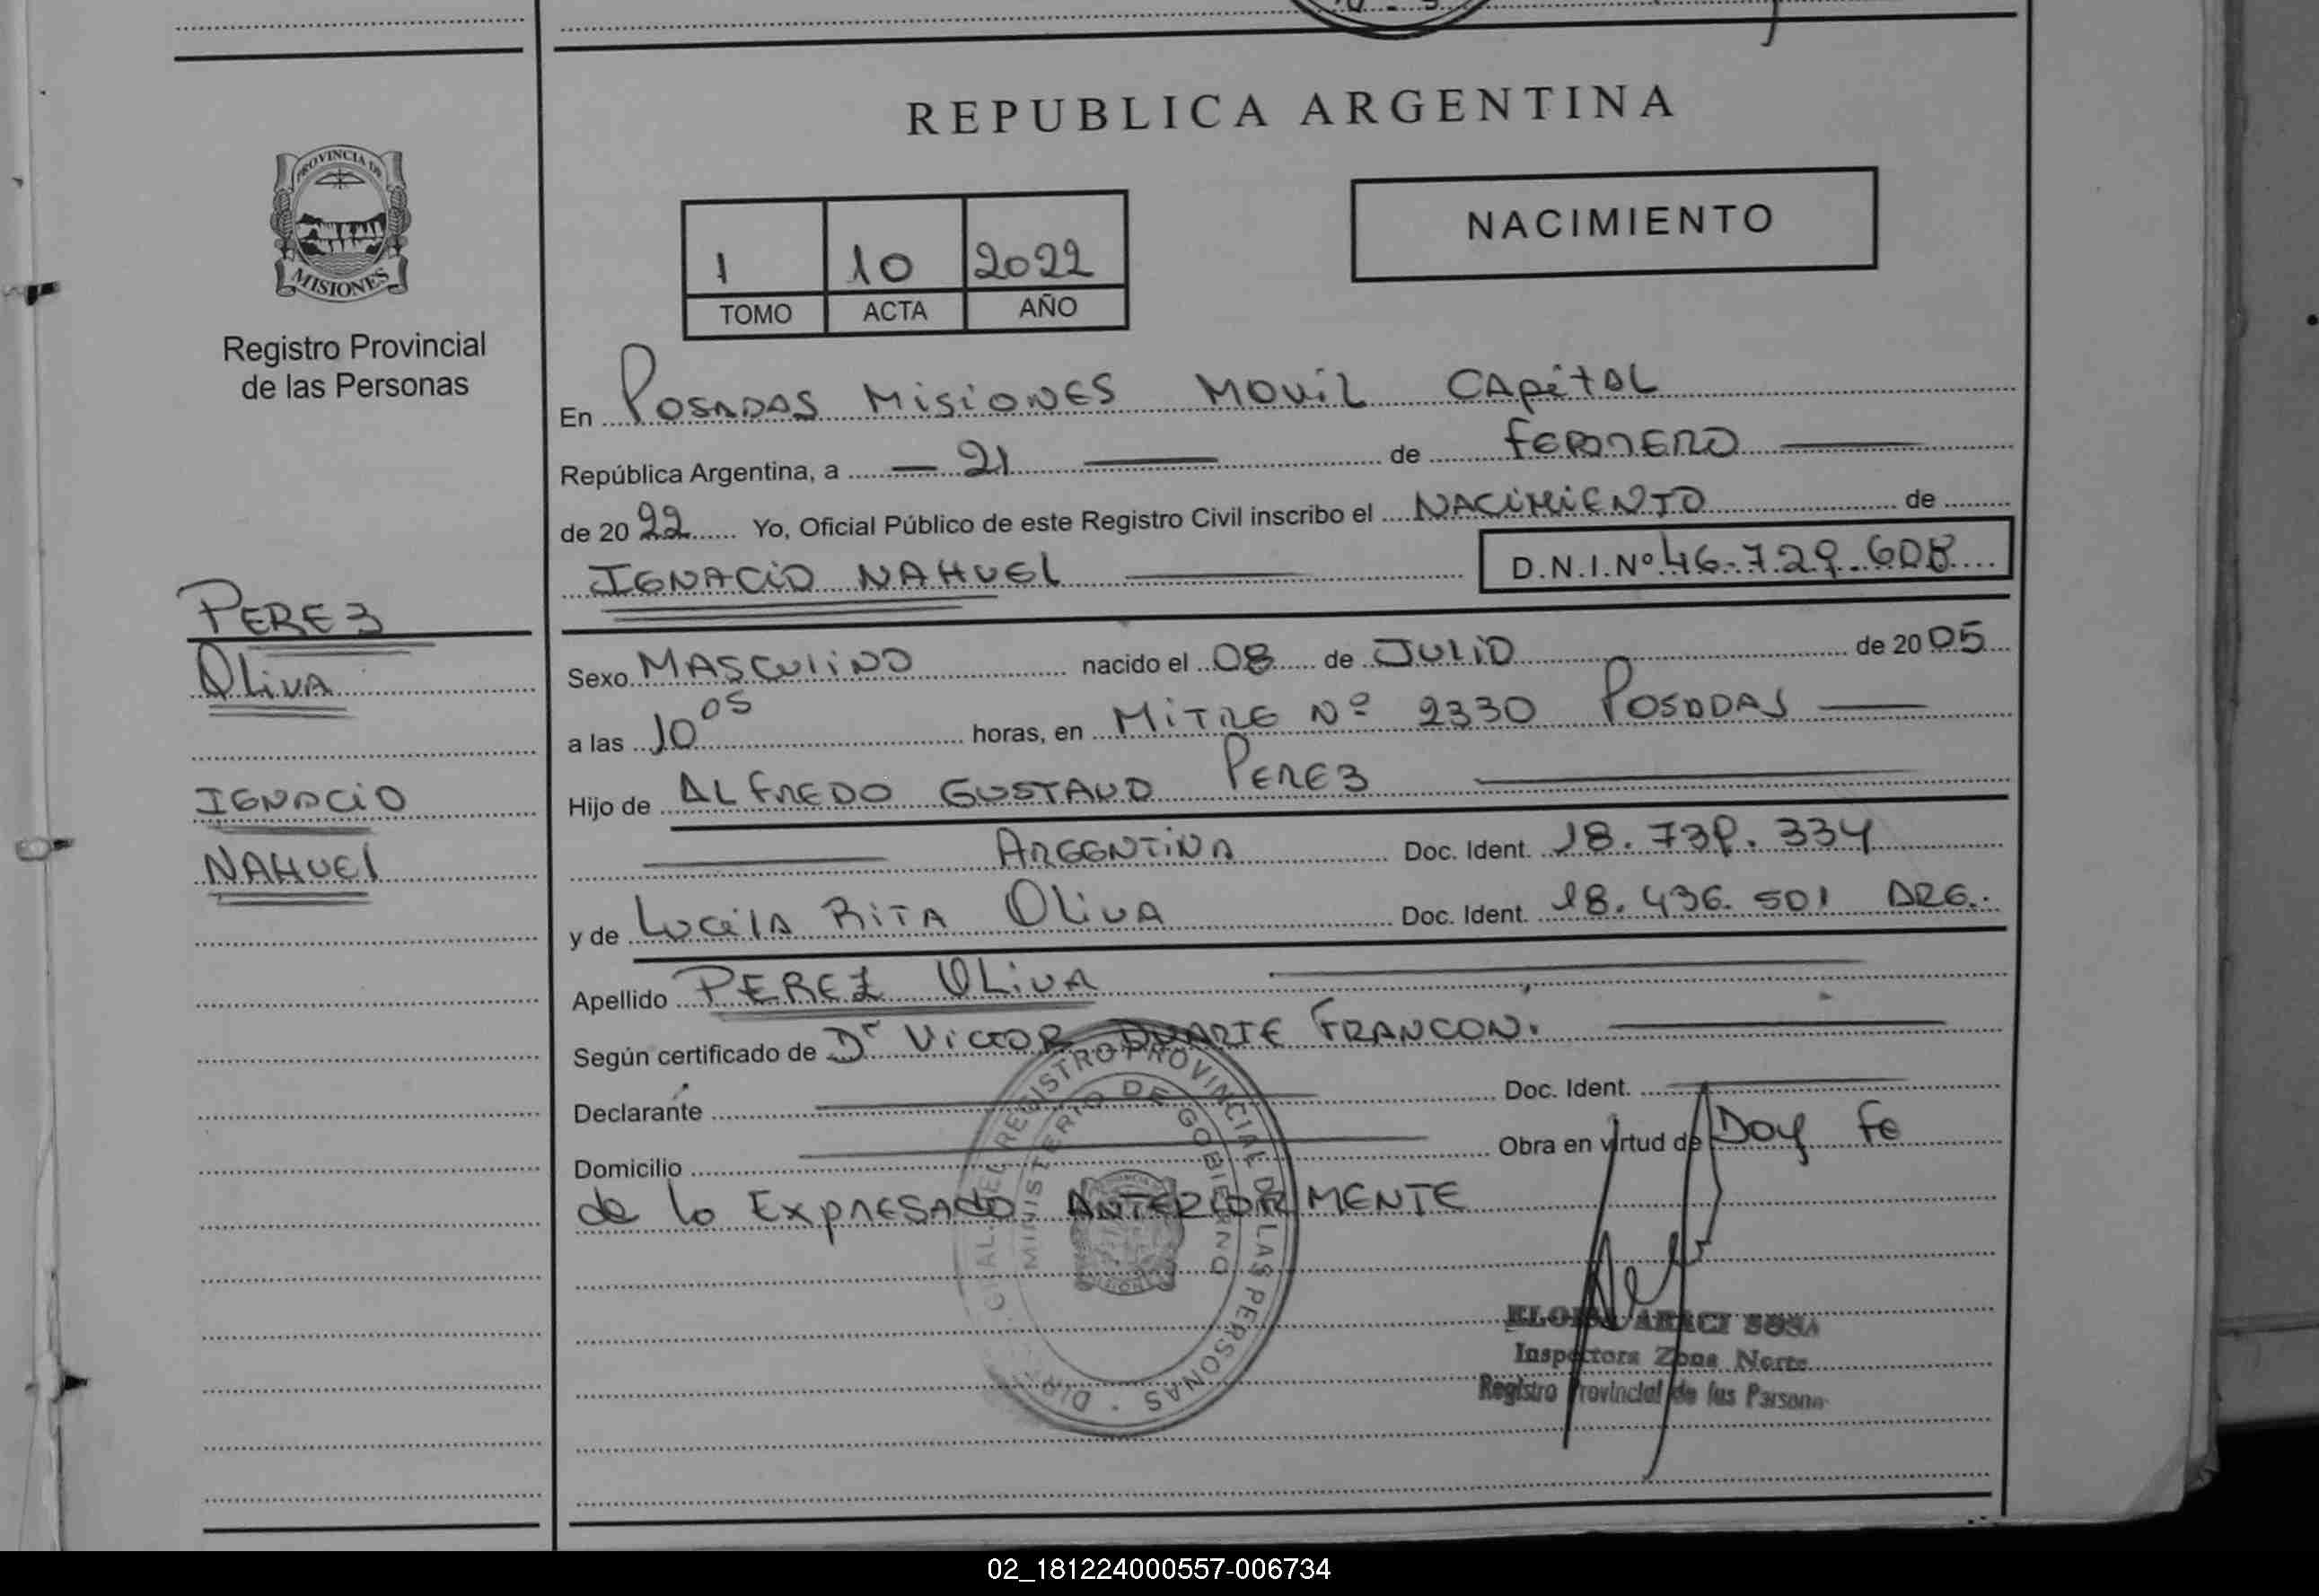 REPUBLICA ARGENTINA
PROVINCIA DE
MISIONES
Registro Provincial
de las Personas
1 10 2022
TOMO ACTA AÑO
NACIMIENTO
En Posadas Misiones Movil Capital
República Argentina, a - 21 — de Febrero —
de 20 22 Yo, Oficial Público de este Registro Civil inscribo el NACIMIENTO de
IGNACIO NAHUEL — D.N.I.Nº 46.729.608
PEREZ
OLIVA
IGNACIO
NAHUEL
Sexo MASCULINO nacido el 08 de JULIO de 20 05
a las 10 05 horas, en MITRE Nº 2330 POSADAS —
Hijo de ALFREDO GUSTAVO PEREZ —
— ARGENTINA Doc. Ident. 18.739.334
y de LUCILA RITA OLIVA Doc. Ident. 18.436.501 ARG.
Apellido PEREZ OLIVA —
Según certificado de Dr VICTOR DUARTE FRANCON. —
Declarante — Doc. Ident. —
Domicilio — Obra en virtud de Doy fe
de lo Expresado ANTERIORMENTE
REGISTRO PROVINCIAL DE LAS PERSONAS
MINISTERIO DE GOBIERNO
ARACI SOSA
Inspectora Zona Norte
Registro Provincial de las Persona
02_181224000557-006734